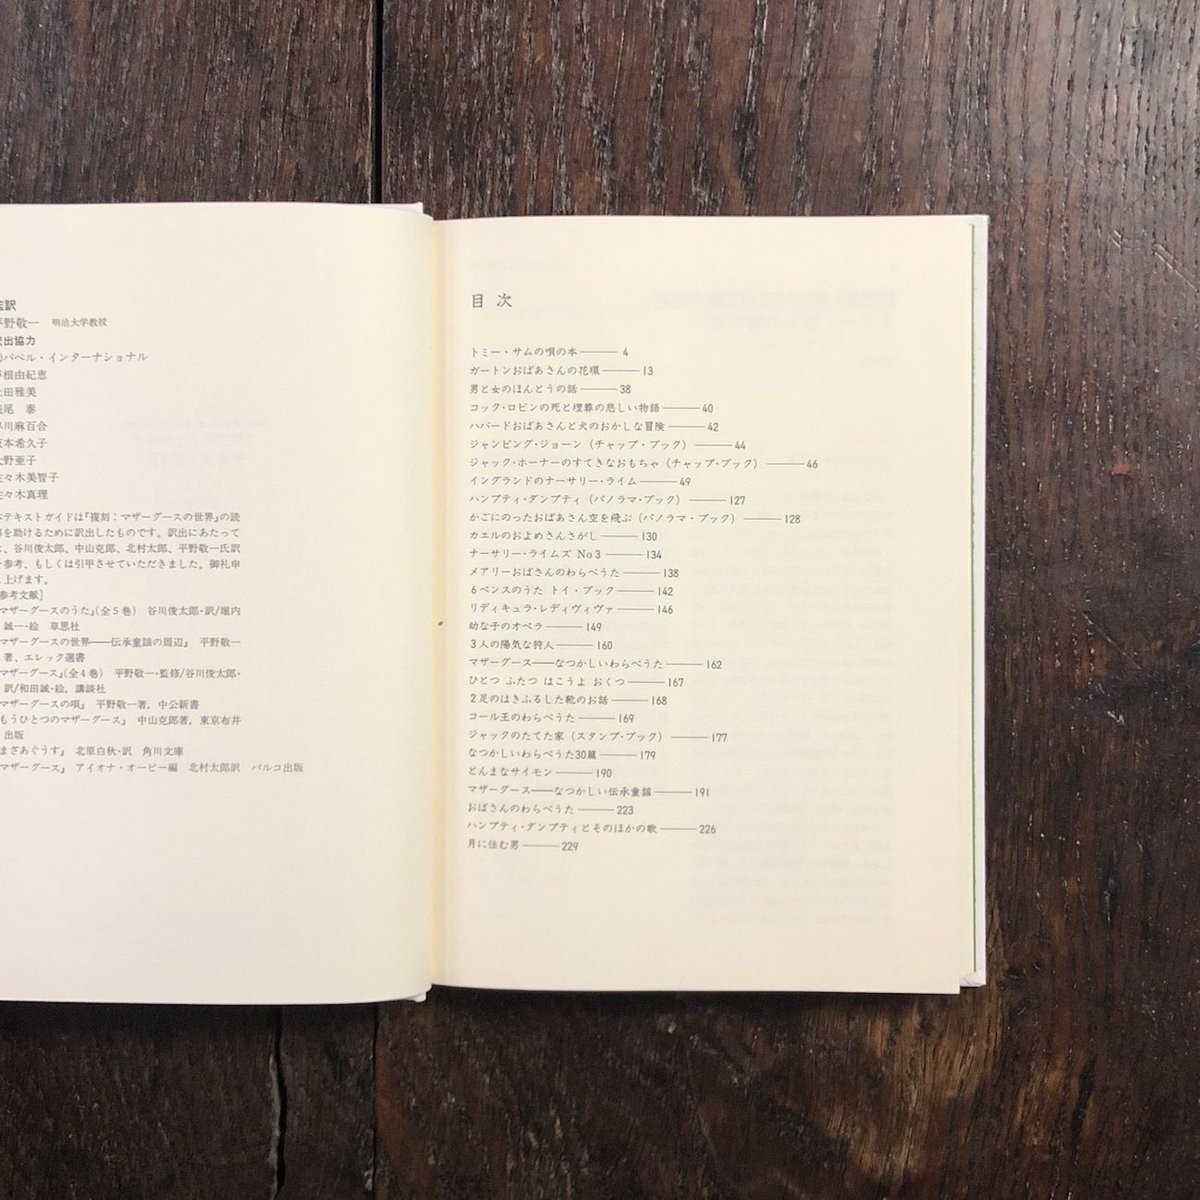 監訳
平野敬一 明治大学教授
訳出協力
バベル・インターナショナル
根由紀恵
田雅美
尾 泰
早川麻百合
坂本希久子
大野亜子
佐々木美智子
佐々木真理
本テキストガイドは『複刻:マザーグースの世界』の読
解を助けるために訳出したものです。訳出にあたって
は、谷川俊太郎、中山克郎、北村太郎、平野敬一氏訳
を参考、もしくは引用させていただきました。御礼申
し上げます。
[参考文献]
『マザーグースのうた』(全5巻) 谷川俊太郎・訳/堀内
誠一・絵 草思社
『マザーグースの世界——伝承童謡の周辺』 平野敬一
著、エレック選書
『マザーグース』(全4巻) 平野敬一・監修/谷川俊太郎・
訳/和田誠・絵, 講談社
『マザーグースの唄』 平野敬一著, 中公新書
『もうひとつのマザーグース』 中山克郎著, 東京布井
出版
『まざあぐうす』 北原白秋・訳 角川文庫
『マザーグース』 アイオナ・オーピー編 北村太郎訳 パルコ出版
目次
トミー・サムの唄の本——4
ガートンおばあさんの花環——13
男と女のほんとうの話——38
コック・ロビンの死と埋葬の悲しい物語——40
ハバードおばあさんと犬のおかしな冒険——42
ジャンピング・ジョーン(チャップ・ブック)——44
ジャック・ホーナーのすてきなおもちゃ(チャップ・ブック)——46
イングランドのナーサリー・ライム——49
ハンプティ・ダンプティ(パノラマ・ブック)——127
かごにのったおばあさん空を飛ぶ(パノラマ・ブック)——128
カエルのおよめさんさがし——130
ナーサリー・ライムズ No3——134
メアリーおばさんのわらべうた——138
6ペンスのうた トイ・ブック——142
リディキュラ・レディヴィヴァ——146
幼な子のオペラ——149
3人の陽気な狩人——160
マザーグース——なつかしいわらべうた——162
ひとつ ふたつ はこうよ おくつ——167
2足のはきふるした靴のお話——168
コール王のわらべうた——169
ジャックのたてた家(スタンプ・ブック)——177
なつかしいわらべうた30篇——179
とんまなサイモン——190
マザーグース——なつかしい伝承童謡——191
おばさんのわらべうた——223
ハンプティ・ダンプティとそのほかの歌——226
月に住む男——229